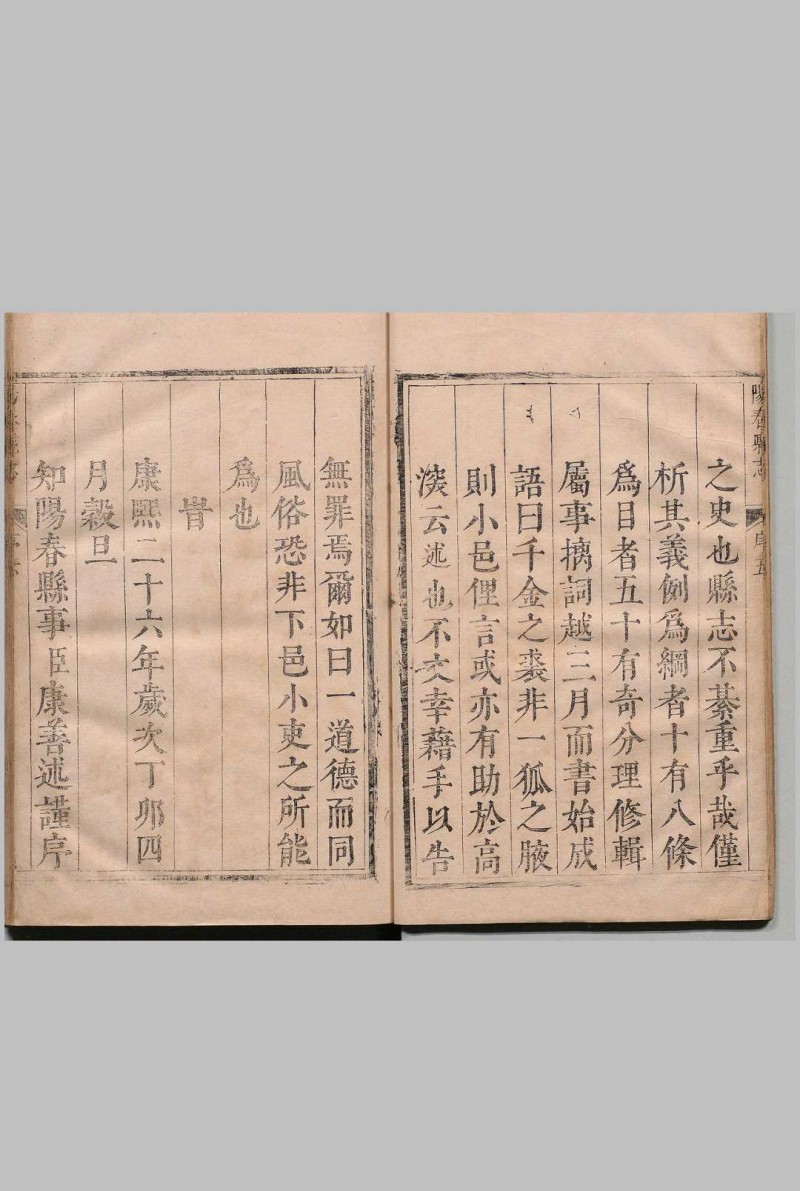 陽春縣志
序五
之史也縣志不綦重乎哉僅
析其義例爲綱者十有八條
爲目者五十有奇分理修輯
屬事摛詞越三月而書始成
語曰千金之裘非一狐之腋
則小邑俚言或亦有助於高
深云述也不文幸藉手以告
無罪焉爾如曰一道德而同
風俗恐非下邑小吏之所能
爲也
旹
康熙二十六年歲次丁卯四
月榖旦
知陽春縣事臣康善述謹序